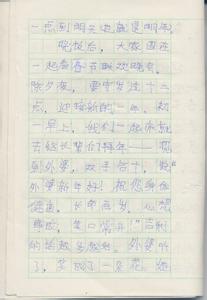 一点到明天也就是明年。
晚饭后，大家围在
一起看春节联欢晚会。
除夕夜，要守岁过十二
点，迎接新的一年。初
一早上，我们一起床就
去给长辈们拜年——
到外婆，双手合十，说"
外婆新年好！祝您身体
健康，长命百岁，心想
事成，笑口常开！"吉利
的话越多越好。外婆听
了，笑成了一朵花，给